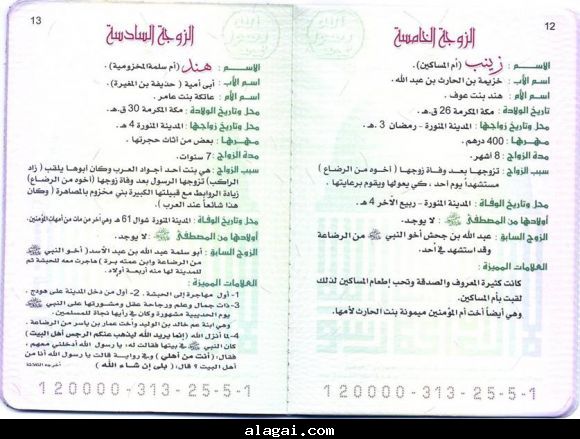 12
الزوجة الخامسة
الاســـم : زينب (أم المساكين) .
اسم الأب : خزيمة بن الحارث بن عبد الله .
اسم الأم : هند بنت عوف .
تاريخ الولادة : مكة المكرمة 26 ق.هـ .
محل وتاريخ زواجها : المدينة المنورة - رمضان 3 .هـ .
مـهـرهـا : 400 درهم .
مدة الزواج : 8 أشهر .
سبب الزواج : تزوجـها بعـد وفاة زوجـها ( أخـوه من الرضاع )
مستشهداً يوم أحد ، كي يعولها ويقوم برعايتها .
محل وتاريخ الوفاة : المدينة المنورة - ربيع الآخر 4 هـ .
أولادها من المصطفى ﷺ : لا يوجد .
الزوج السابق : عبد الله بن جحش أخو النبي ﷺ من الرضاعة
وقد استشهد في أحد .
العلامات المميزة :
كانت كثيرة المعروف والصدقة وتحب إطعام المساكين لذلك
لقبت بأم المساكين .
وهي أيضاً أخت أم المؤمنين ميمونة بنت الحارث لأمها .
120000-313-25-5-1
13
الزوجة السادسة
الاســـم : هـنـد (أم سلمة المخزومية) .
اسم الأب : أبي أمية ( حذيفة بن المغيرة ) .
اسم الأم : عاتكة بنت عامر .
محل وتاريخ الولادة : مكة المكرمة 30 ق.هـ .
محل وتاريخ زواجها : المدينة المنورة 4 هـ .
مـهـرهـا : بعض من أثاث حجرتها .
مدة الزواج : 7 سنوات .
سبب الزواج : هي بنت أحد أجواد العرب وكان أبوها يلقب ( زاد
الراكب ) تزوجها الرسول بعد وفاة زوجها (أخوه من الرضاع)
زيادة الروابط مع قبيلتها الكبيرة بني مخزوم بالمصاهرة ( وكان
هذا شائعاً عند العرب ) .
محل وتاريخ الوفاة : المدينة المنورة شوال 61 هـ وهي آخر من مات من أمهات المؤمنين .
أولادها من المصطفى ﷺ : لا يوجد .
الزوج السابق : أبو سلمة عبد الله بن عبد الأسد ( أخو النبي ﷺ
من الرضاعة وابن عمته برة ) هاجرت معه للحبشة ثم
للمدينة لها منه أربعة أولاد .
العلامات المميزة :
1- أول مهاجرة إلى الحبشة . 2- أول من دخل المدينة على هودج .
3- ذات جمال وعلم ورجاحة عقل ومشورتها على النبي ﷺ
يوم الحديبية مشهورة وكان في رأيها نجاة للمسلمين .
وهي ابنة عم خالد بن الوليد وأخت عمار بن ياسر من الرضاعة .
4- لما أنزل الله (إنما يريد الله ليذهب عنكم الرجس أهل البيت)
كان النبي ﷺ في بيتها فقالت له : يا رسول الله أدخلني معهم ،
فقال : ( أنت من أهلي ) وفي رواية قالت يا رسول الله أنا من
أهل البيت ؟ قال : ( بلى إن شاء الله )
120000-313-25-5-1
alagai.com